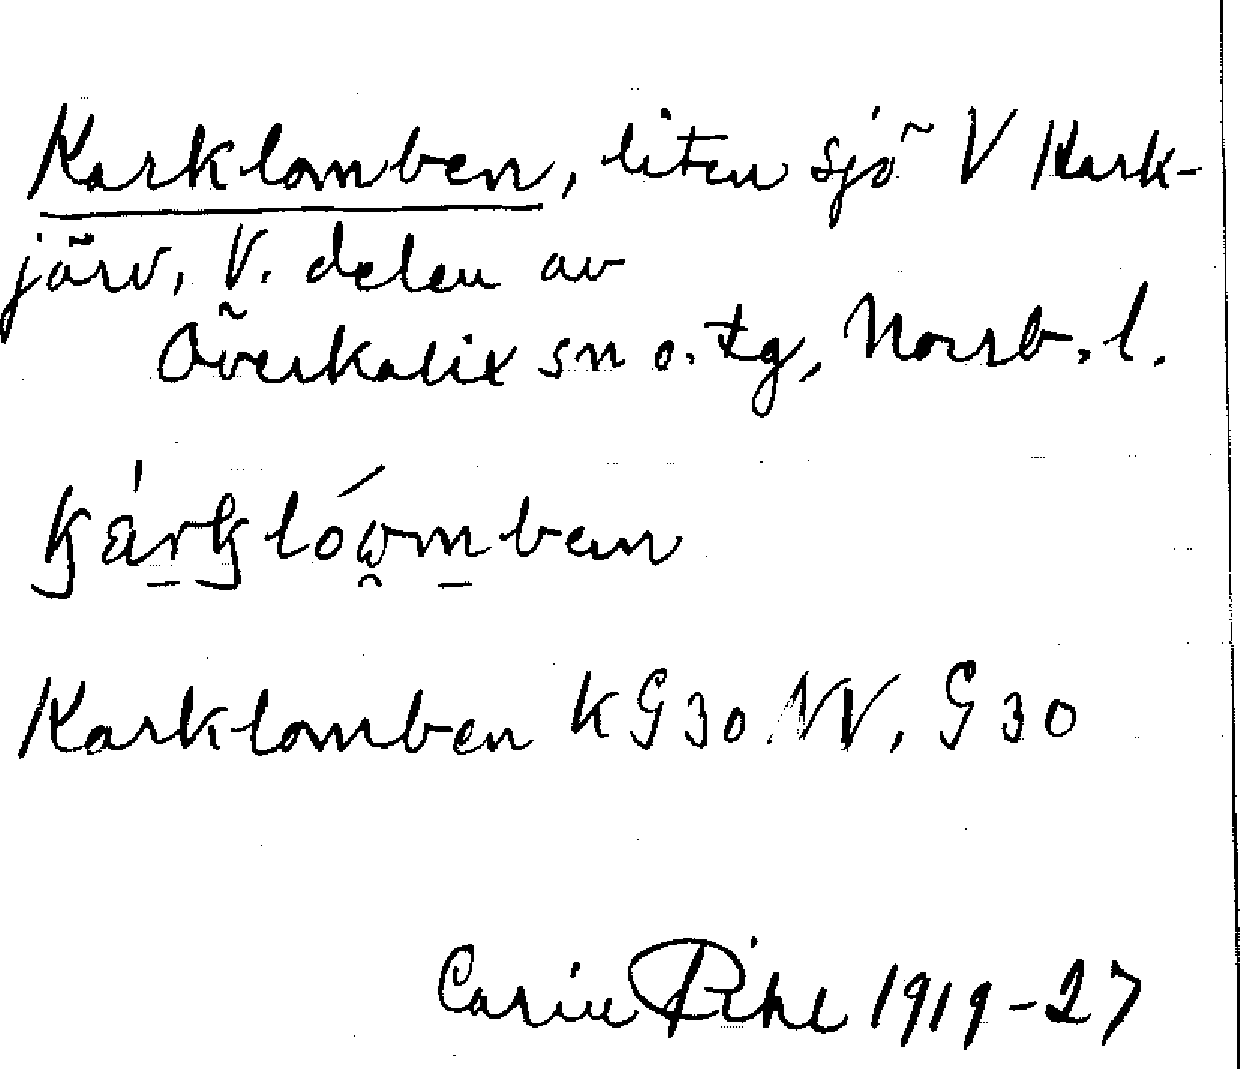 Karklomben, liten sjö V Kark-
järv, V. delen av
Överkalix sn o. tg, Norrb. l.
Karklomben KG30 NV, G 30
Carin Pihl 1919-27